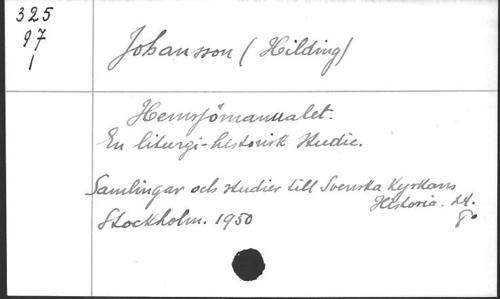 325
97
1
Johansson (Hilding)
Hemsjömanualet.
En liturgi-historisk Studie.
Samlingar och studier till Svenska Kyrkans
Historia. 24.
Stockholm. 1950
8o